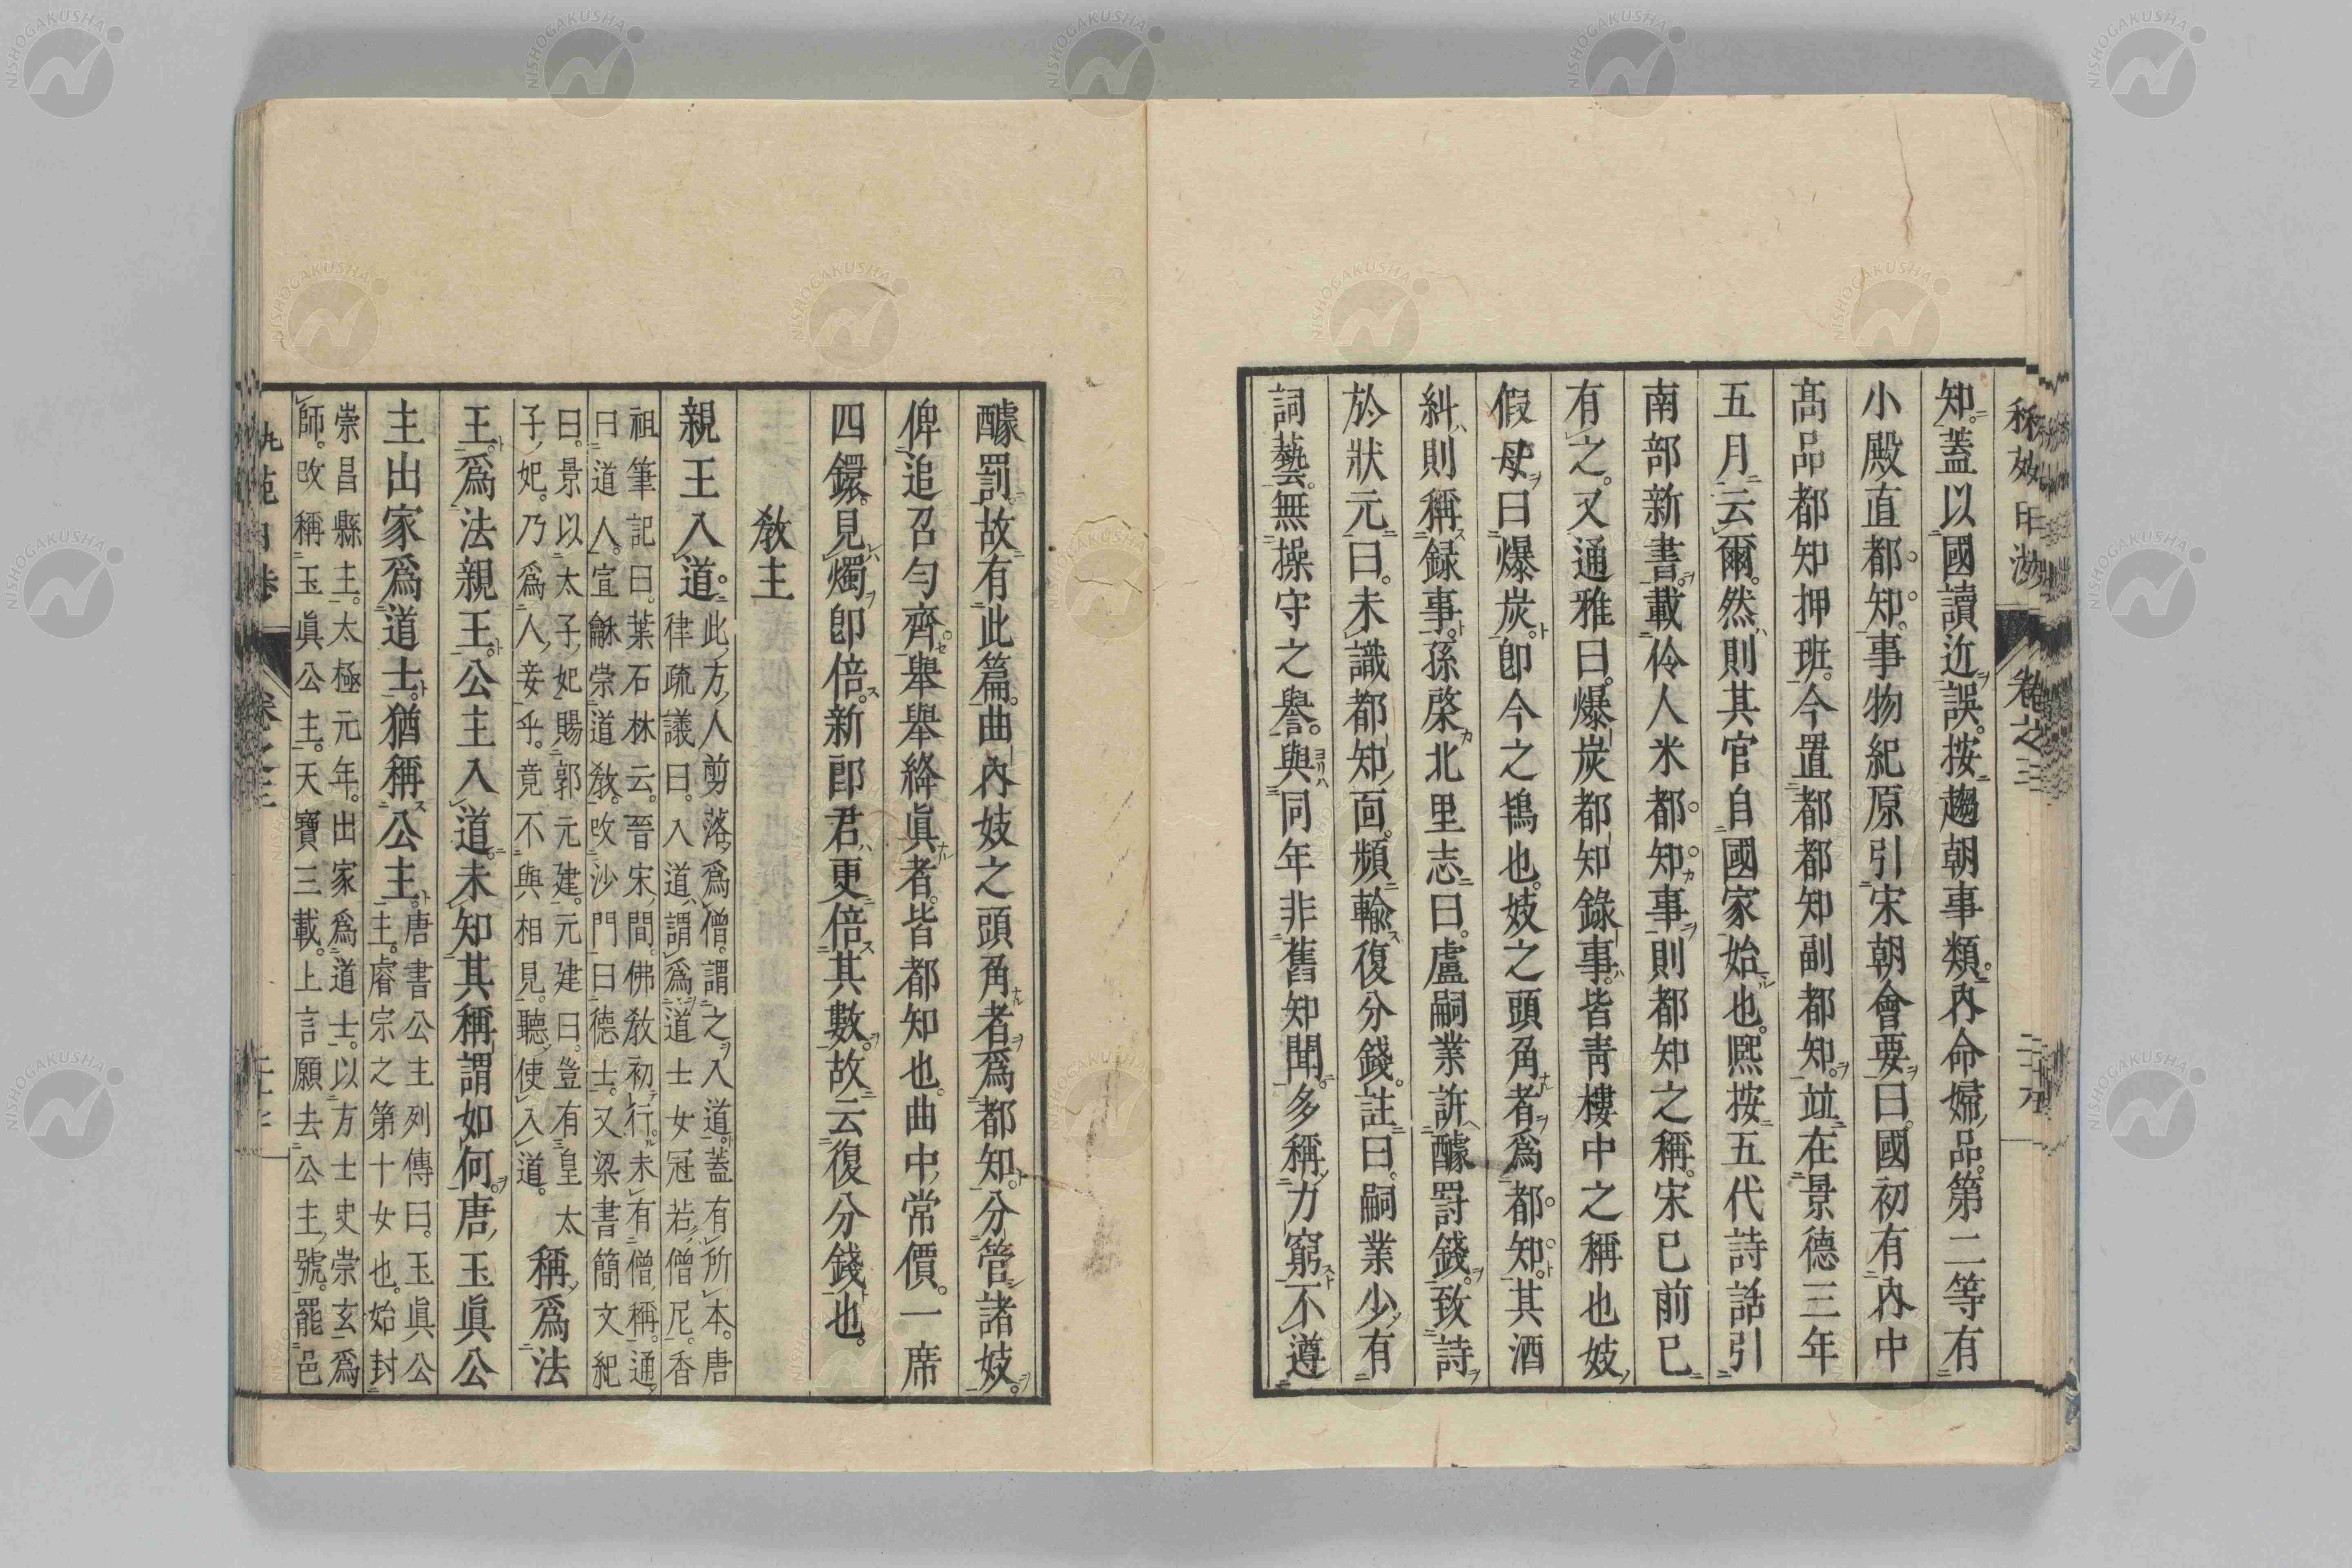 知。蓋以國讀近誤。按趨朝事類。內命婦品。第二等有
小殿直都知。事物紀原引宋朝會要曰。國初有內中
高品都知押班。今置都都知副都知。竝在景德三年
五月云爾。然則其官自國家始也。熙按五代詩話引
南部新書。載伶人米都知事。則都知之稱。宋已前已
有之。又通雅曰。爆炭都知錄事。皆靑樓中之稱也妓
假母曰爆炭。卽今之鴇也。妓之頭角者爲都知。其酒
糾則稱録事。孫棨北里志曰。盧嗣業訴醵罸錢。致詩
於狀元曰。未識都知面。頻輸復分錢。註曰。嗣業少有
詞藝。無操守之譽。與同年非舊知聞。多稱力窮不遵
醵罰。故有此篇。曲內妓之頭角者。爲都知。分管諸妓。
俾追召勻齊。舉舉絳眞者。皆都知也。曲中常價。一席
四鐶。見燭卽倍。新郎君更倍其數。故云復分錢也。
敎主
親王入道。此方人剪落爲僧。謂之入道。蓋有所本。唐
律疏議曰。入道謂爲道士女冠若僧尼。香
祖筆記曰。葉石林云。晉宋間。佛敎初行。未有僧稱。通
曰道人。宣龢崇道敎。改沙門曰德士。又梁書簡文紀
曰。景以太子妃賜郭元建。元建曰。豈有皇太
子妃。乃爲人妾乎。竟不與相見。聽使入道。
稱爲法
王。爲法親王。公主入道。未知其稱謂如何。唐玉眞公
主出家爲道士。猶稱公主。唐書公主列傳曰。玉眞公
主。睿宗之第十女也。始封
崇昌縣主。太極元年。出家爲道士。以方士史崇玄爲
師。改稱玉眞公主。天寶三載。上言願去公主號。罷邑
卷之三